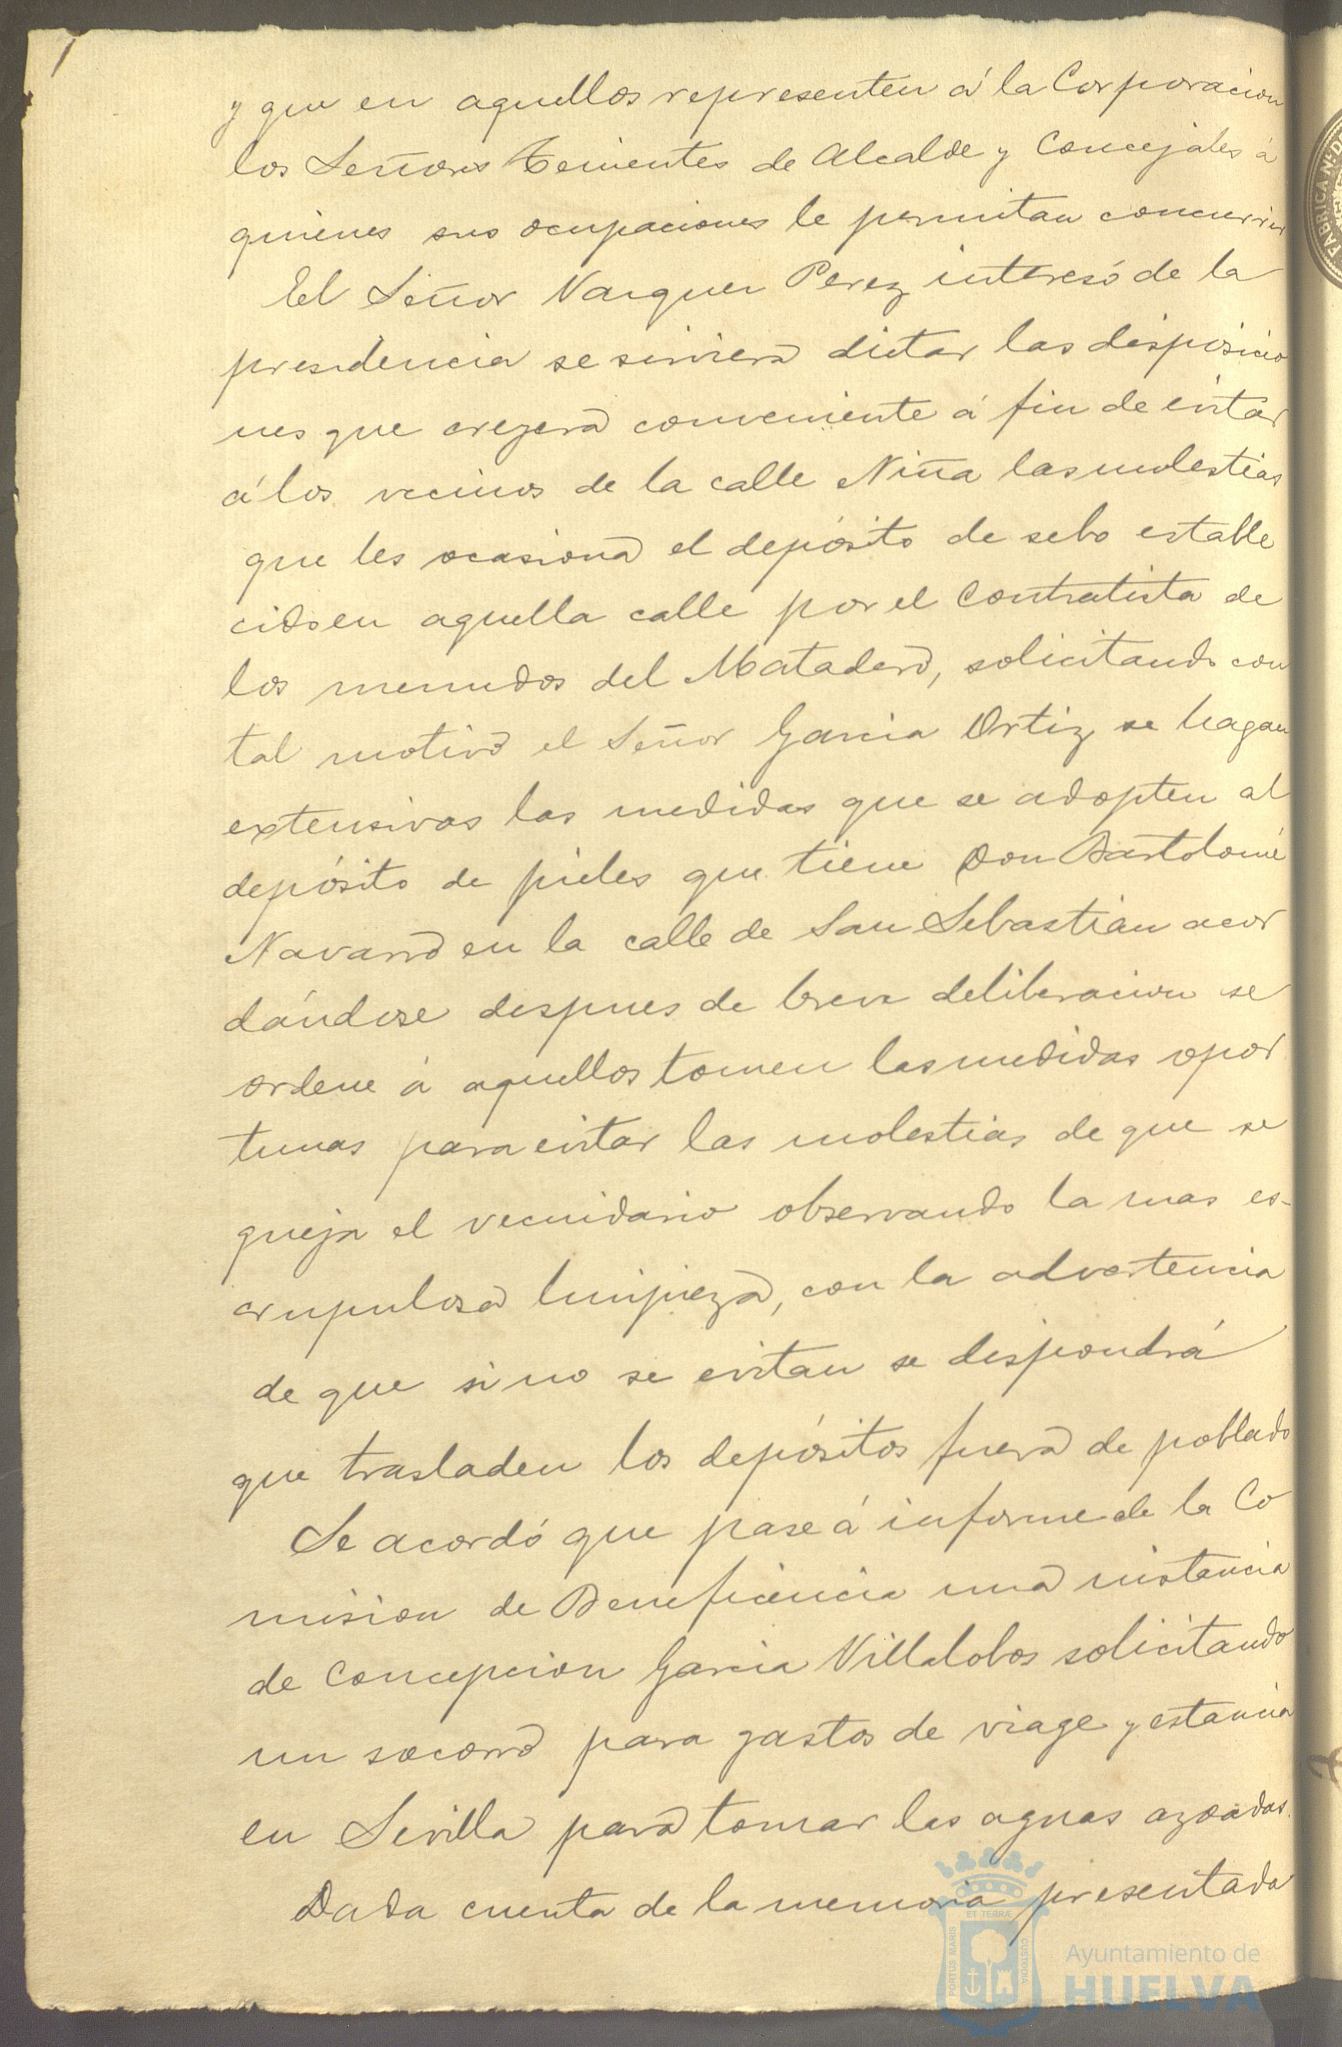 y que en aquellos representen á la Corporacion
los Señores Tenientes de Alcalde y Concejales á
quienes sus ocupaciones le permitan concurrir
El Señor Vazquez Perez interesó de la
presidencia se serviera dictar las disposicio
nes que creyera conveniente á fin de evitar
á los vecinos de la calle Niña las molestias
que les ocasiona el depósito de sebo estable
cido en aquella calle por el Contratista de
los menudos del Matadero, solicitando con
tal motivo el Señor Garcia Ortiz se hagan
extensivas las medidas que se adopten al
depósito de pieles que tiene Don Bartolomé
Navarro en la calle de San Sebastian acor
dándose despues de breve deliberacion se
ordene á aquellos tomen las medidas opor
tunas para evitar las molestias de que se
queja el vecindario observando la mas es-
crupulosa limpieza, con la advertencia
de que si no se evitan se dispondrá
que trasladen los depósitos fuera de poblado
Se acordó que pase á informe de la Co
mision de Beneficencia una instancia
de Concepcion Garcia Villalobos solicitando
un socorro para gastos de viage y estancia
en Sevilla para tomar las aguas azoadas.
Dada cuenta de la memoria presentada
PORTUS MARIS ET TERRÆ CUSTODIA
Ayuntamiento de
HUELVA